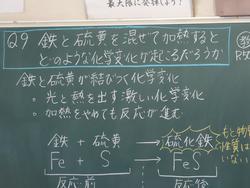 最大限に発揮しよう!
Q9 鉄と硫黄を混ぜて加熱すると
どのような化学変化が起こるだろうか
鉄と硫黄が結びつく化学変化
・光と熱を出す激しい化学変化
・加熱をやめても反応が進む
鉄 + 硫黄 → 硫化鉄
Fe + S → FeS
反応前 反応後
もと物
性質は
いない